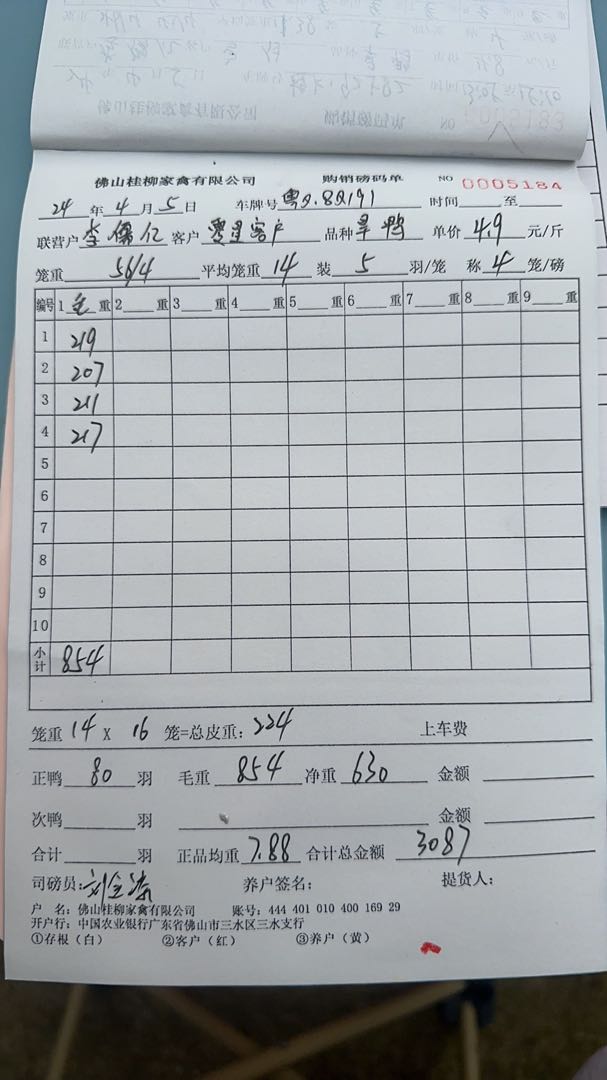 佛山桂柳家禽有限公司 购销磅码单 NO 0005184
24年4月5日 车牌号 时间 至
联营户 李 仁 客户 零星客户 品种 旱鸭 单价 4.9 元/斤
笼重 56/4 平均笼重 14 装 5 羽/笼 称 4 笼/磅
编号 1 毛 重 2 重 3 重 4 重 5 重 6 重 7 重 8 重 9 重
1 219
2 207
3 211
4 217
5
6
7
8
9
10
小计 854
笼重 14 X 16 笼=总皮重: 224 上车费
正鸭 80 羽 毛重 854 净重 630 金额
次鸭 羽 金额
合计 羽 正品均重 7.88 合计总金额 3087
司磅员: 刘 养户签名: 提货人:
户 名: 佛山桂柳家禽有限公司 账号: 444 401 010 400 169 29
开户行: 中国农业银行广东省佛山市三水区三水支行
①存根（白） ②客户（红） ③养户（黄）